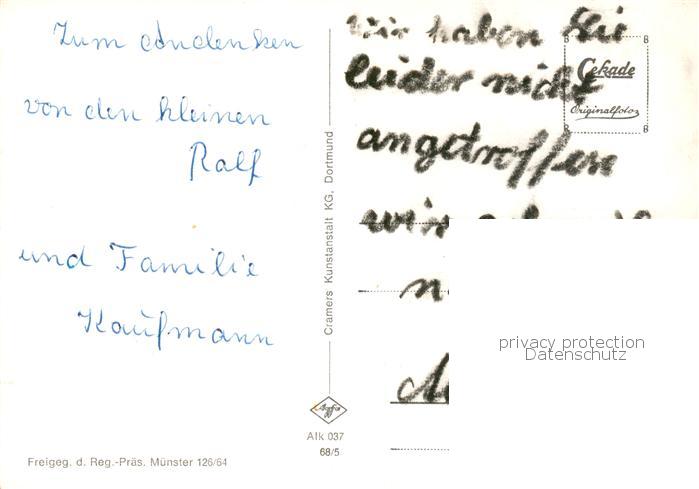 Zum Andenken
von den kleinen
Ralf
und Familie
Kaufmann
Freigeg. d. Reg.-Präs. Münster 126/64
Cramers Kunstanstalt KG, Dortmund
Agfa
Alk 037
68/5
wir haben Sie
leider nicht
angetroffen
wir
Cekade
Originalfoto
privacy protection
Datenschutz